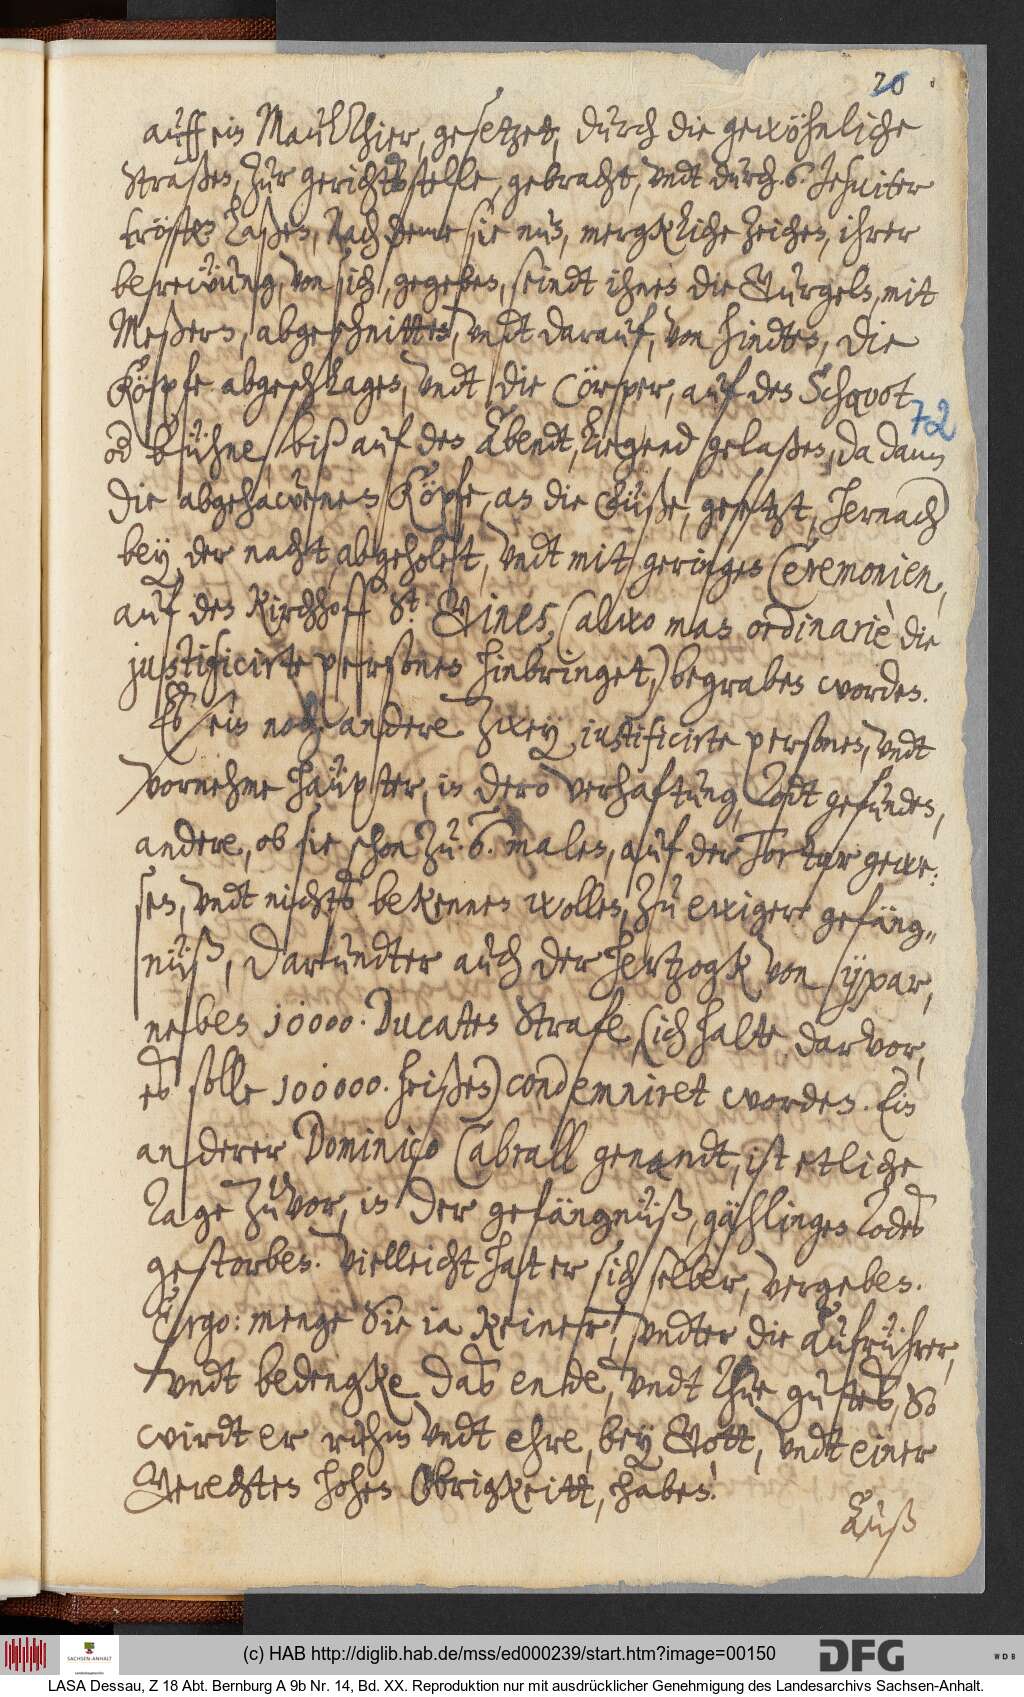 20
auff ein Maulthier, gesetzet, durch die gewöhnliche
Straßen, zur gerichtsstelle, gebracht, vndt durch 6. Jesuiter
trösten laßen, Nach deme sie nun, mergkliche zeichen, ihrer
berewung, von sich, gegeben, seindt ihnen die Gurgeln, mit
Meßern, abgeschnitten, vndt darauf, von hindten, die
Köpfe abgeschlagen, vndt die Cörper, auf dem Schavot
72
od bühne, biß auf den Abendt, liegend gelaßen, da dann
die abgehawenen Köpfe, an die Füße, gesetzt, hernach
bey der nacht, abgeholet, vndt mit geringen Ceremonien,
auf den Kirchhoff St. Gines, (alwo man ordinariè die
justificirte personen hinbringet,) begraben worden.
Es sein noch andere zwey justificirte personen, vndt
vornehme haüpter, in dero verhaftung, Todt gefunden,
andere, ob sie schon zu 6. malen, auf der Tortur gewe:
sen, vndt nichts bekennen wollen, zu ewiger gefäng„
nüß, darundter auch der hertzogk von ÿxar,
neben 10000. Ducaten Strafe, (ich halte darvor,
es solle 100000. heißen) condemniret worden. Ein
anderer Dominico Cabrall genandt, ist etliche
Tage zuvor, in der gefängnüß, gählingen Todes
gestorben. Vielleicht hat er sich selber, vergeben.
Ergo: menge Sie ia keiner, vndter die Aufrührer,
vndt bedengke das ende, vndt Thue gutes, So
wirdt er ruhm vndt ehre, bey Gott, vndt einer
Gerechten hohen Obrigkeitt, haben.
Auß
(c) HAB http://diglib.hab.de/mss/ed000239/start.htm?image=00150
SACHSEN-ANHALT
DFG
WDB
LASA Dessau, Z 18 Abt. Bernburg A 9b Nr. 14, Bd. XX. Reproduktion nur mit ausdrücklicher Genehmigung des Landesarchivs Sachsen-Anhalt.